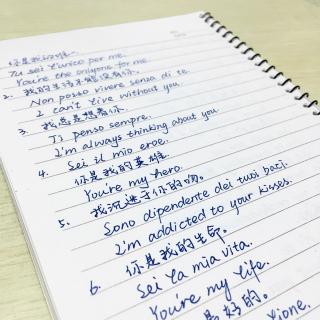 你是我的唯一
Tu sei l'unico per me.
You're the only one for me.
2. 我的生活不能没有你.
Non posso vivere senza di te.
I can't live without you.
3. 我总是想着你
Ti penso sempre.
I'm always thinking about you.
4. Sei il mio eroe.
你是我的英雄.
You're my hero.
5. 我沉迷于你的吻.
Sono dipendente dei tuoi baci.
I'm addicted to your kisses.
你是我的生命.
6. Sei la mia vita.
You're my life.
是好的.